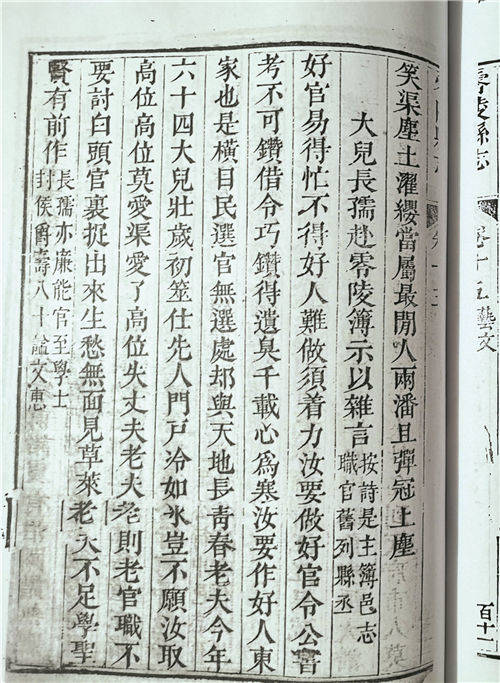 零陵縣志
卷十五藝文
百十一
笑渠塵土濯纓當屬最閒人兩潘且彈冠上塵
大兒長孺赴零陵簿示以雜言
按詩是主簿邑志
職官舊列縣丞
好官易得忙不得好人難做須着力汝要做好官令公喜
考不可鑽借令巧鑽得遺臭千載心爲寒汝要作好人東
家也是橫目民選官無選處却與天地長靑春老夫今年
六十四大兒壯歲初筮仕先人門戸冷如氷豈不願汝取
高位高位莫愛渠愛了高位失丈夫老夫老則老官職不
要討白頭官裏捉出來生愁無面見草萊老夫不足學聖
賢有前作
長孺亦廉能官至學士
封侯爵壽八十諡文惠